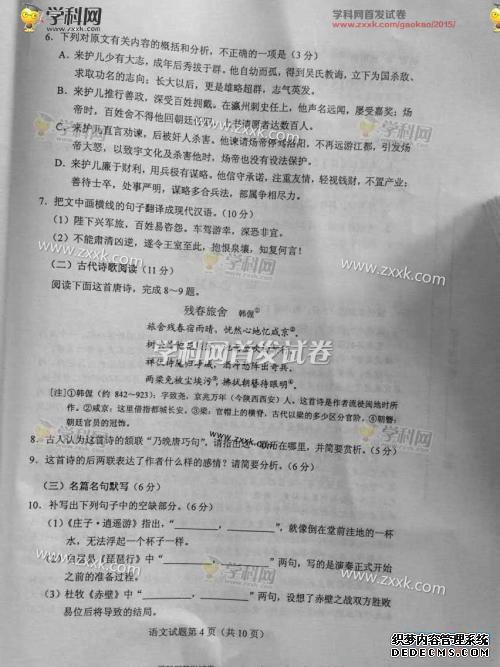 学科网首发试卷
www.zxxk.com/gaokao/2015/
学科网
www.zxxk.com
6．下列对原文有关内容的概括和分析，不正确的一项是（3分）
A．来护儿少有大志，成年后秀拔于群。他自幼而孤，得到吴氏教诲，立下为国杀敌、
求取功名的志向；长大以后，更是雄略超群，志气英发。
B．来护儿推行善政，深受百姓拥戴。在瀛州刺史任上，他声名远闻，屡受嘉奖；炀
帝时，百姓舍不得他回朝廷
上书请愿者达数百人。
C．来护儿直言劝谏，后被奸人杀害。他谏请炀帝停驾洛阳，不再远游江都，引发炀
帝大怒，以致宇文化及杀害他时，炀帝也没有设法保护。
D．来护儿廉于财利，用兵极有谋略。他信守承诺，注重友情，轻视钱财，不置产业；
善待士卒，处事严明，谋略多合兵法，部属争相尽力。
7．把文中画横线的句子翻译成现代汉语。（10分）
（1）陛下兴军旅，百姓易咨怨。车驾游幸，深恐非宜。
（2）不能肃清凶逆，遂令王室至此，抱恨泉壤，知复何言！
（二）古代诗歌阅读（11分）
阅读下面这首唐诗，完成8～9题。
残春旅舍
韩偓①
旅舍残春宿雨晴，恍然心地忆咸京②。
树
两梁免被尘埃污③，拂拭朝簪待眼明④。
学科网首发试卷
[注]①韩偓（约 842～923）：字致尧，京兆万年（今陕西西安）人。这首诗是作者流徙闽地时所
作。②咸京：这里借指都城长安。③梁：官帽上的横脊，古代以梁的多少区分官阶。④朝簪：
朝廷官员的冠饰。
8．古人认为这首诗的颔联“乃晚唐巧句”，请指出这
巧在哪里，并简要赏析。（5分）
9．这首诗的后两联表达了作者什么样的感情？请简要分析。（6分）
（三）名篇名句默写（6分）
10．补写出下列句子中的空缺部分。（6分）
（1）《庄子·逍遥游》指出，“________，________”，就像倒在堂前洼地的一杯
水，无法浮起一个杯子一样。
（2）白居易《琵琶行》中“________，________”两句，写的是演奏正式开始
之前的准备过程。
（3）杜牧《赤壁》中“________，________”两句，设想了赤壁之战双方胜败
易位后将导致的结局。
语文试题第 4 页（共 10 页）
学科网
www.zxxk.com
头条软件管理系统